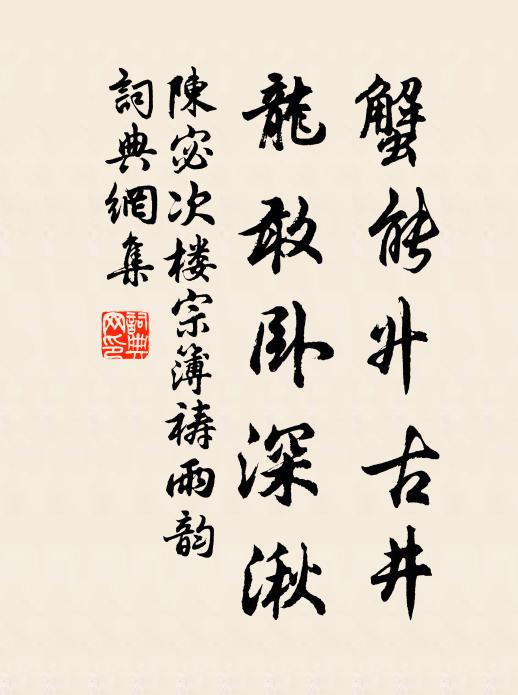 蟹能升古井
龍敢卧深湫
陳宓次楼宗簿禱雨韵
詞典網集
詞典網印